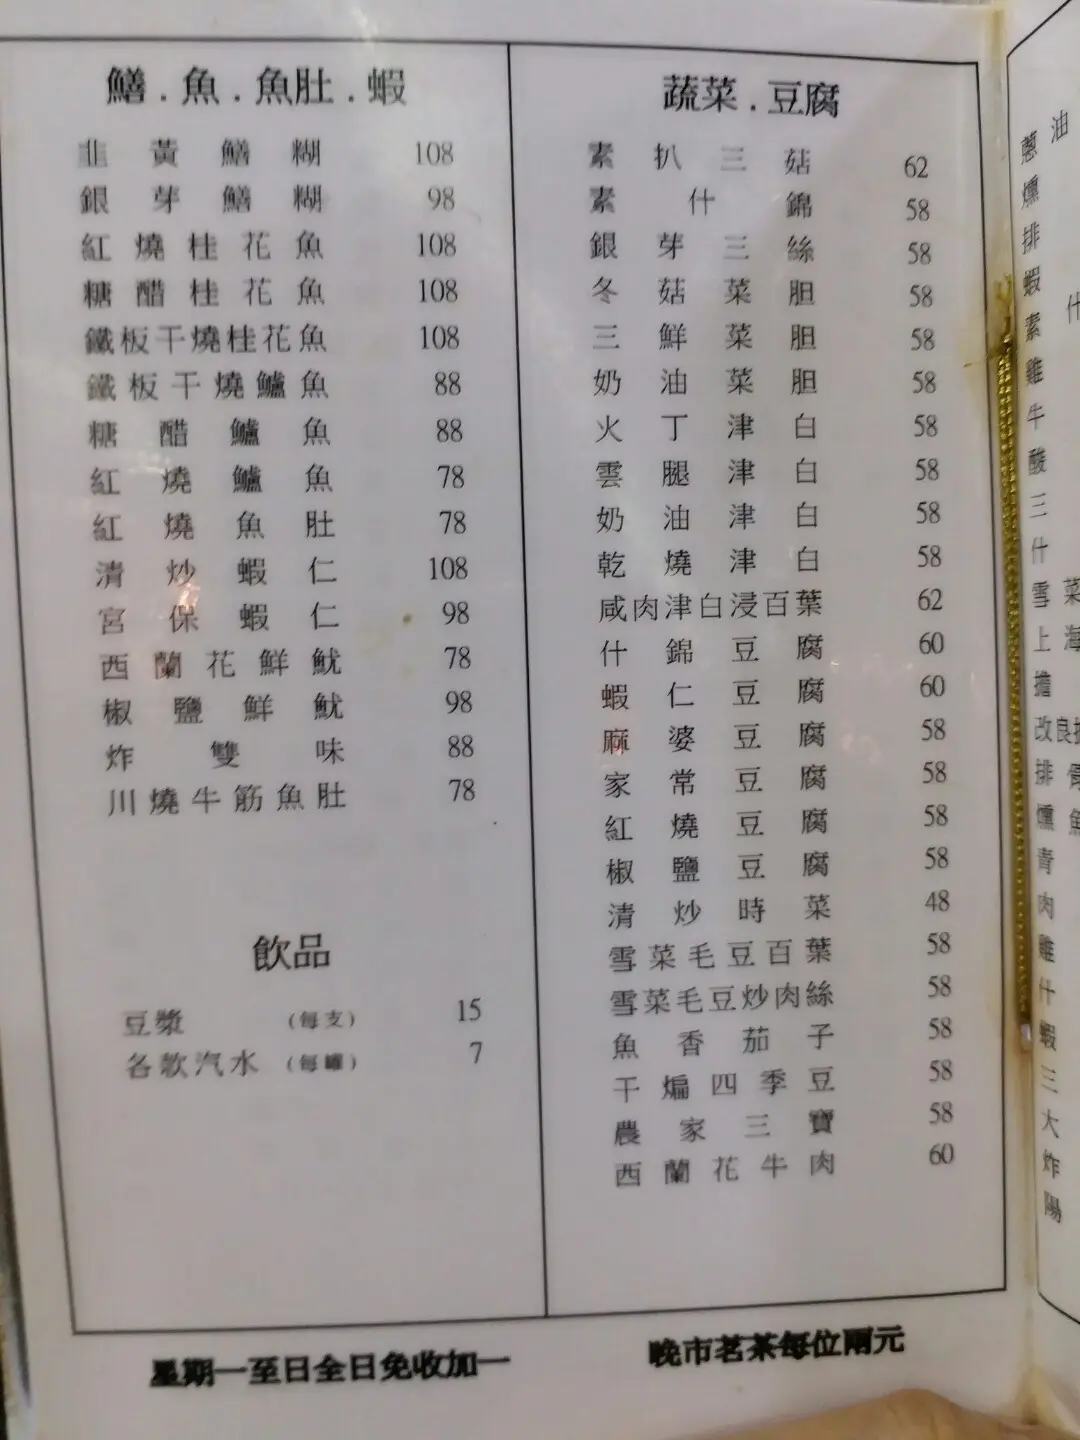 鱔．魚．魚肚．蝦
韭黃鱔糊 108
銀芽鱔糊 98
紅燒桂花魚 108
糖醋桂花魚 108
鐵板干燒桂花魚 108
鐵板干燒鱸魚 88
糖醋鱸魚 88
紅燒鱸魚 78
紅燒魚肚 78
清炒蝦仁 108
宮保蝦仁 98
西蘭花鮮魷 78
椒鹽鮮魷 98
炸雙味 88
川燒牛筋魚肚 78
飲品
豆漿 (每支) 15
各款汽水 (每罐) 7
蔬菜．豆腐
素扒三菇 62
素什錦 58
銀芽三絲 58
冬菇菜胆 58
三鮮菜胆 58
奶油菜胆 58
火丁津白 58
雲腿津白 58
奶油津白 58
乾燒津白 58
咸肉津白浸百葉 62
什錦豆腐 60
蝦仁豆腐 60
麻婆豆腐 58
家常豆腐 58
紅燒豆腐 58
椒鹽豆腐 58
清炒時菜 48
雪菜毛豆百葉 58
雪菜毛豆炒肉絲 58
魚香茄子 58
干煸四季豆 58
農家三寶 58
西蘭花牛肉 60
星期一至日全日免收加一
晚市茗茶每位兩元
油
蔥
燻
排
蝦
素 什
雞
牛
酸
三
什
雪菜
上海
擔
改良
排
燻
青
肉
雞
什
蝦
三
大
炸
陽